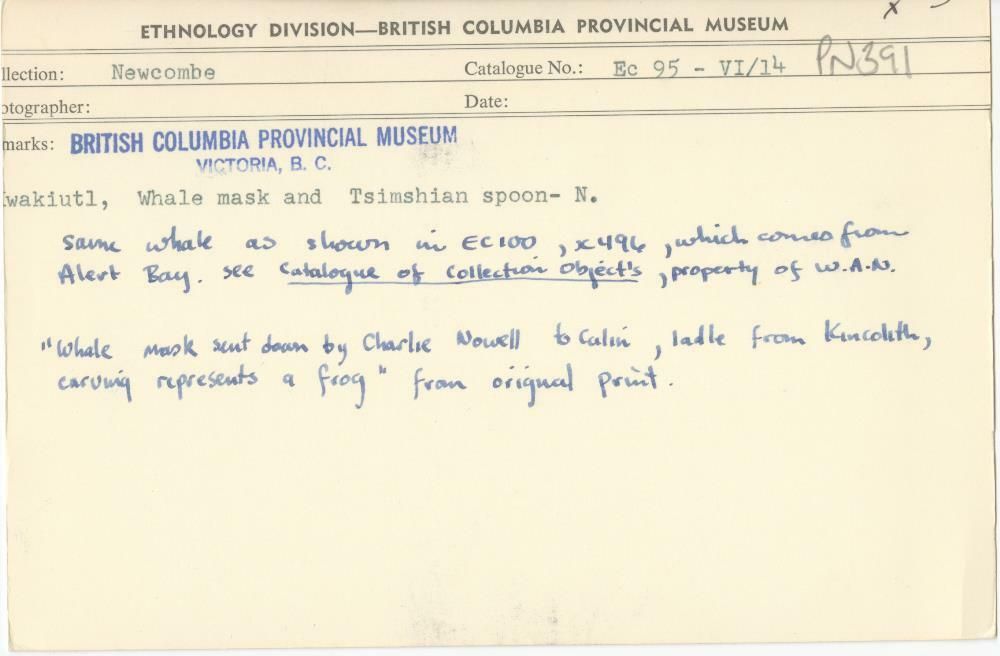 x
ETHNOLOGY DIVISION—BRITISH COLUMBIA PROVINCIAL MUSEUM
llection: Newcombe Catalogue No.: Ec 95 - VI/14 PN391
otographer: Date:
marks: BRITISH COLUMBIA PROVINCIAL MUSEUM
VICTORIA, B. C.
wakiutl, Whale mask and Tsimshian spoon- N.
Same whale as shown in EC100, x496, which comes from
Alert Bay. see Catalogue of Collection Object's, property of W.A.N.
"Whale mask sent down by Charlie Nowell to Calin, ladle from Kincolith,
carving represents a frog" from original print.